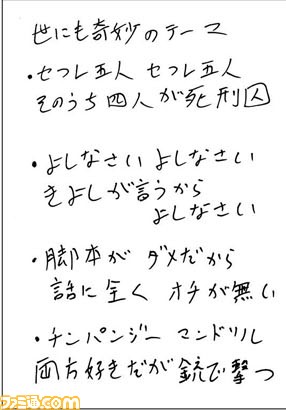 世にも奇妙のテーマ
・セフレ五人 セフレ五人
そのうち四人が死刑囚
・よしなさい よしなさい
きよしが言うから
よしなさい
・脚本が ダメだから
話に全く オチが無い
・チンパンジー マンドリル
両方好きだが銃で撃つ
ファミ通.com